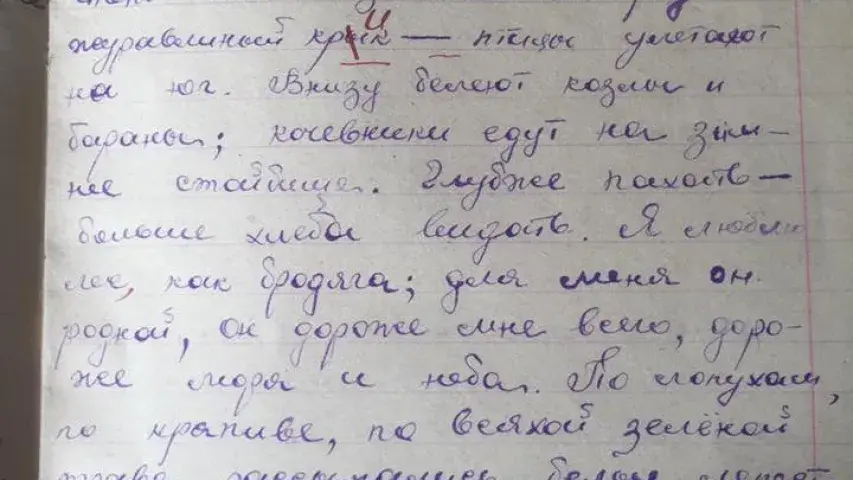 журавлиный крик — птицы улетают
на юг. Внизу белеют козлы и
бараны; кочевники едут на зим-
нее стойбище. Глубже пахать —
больше хлеба видать. Я люблю
лес, как бродяга; для меня он
родной, он дороже мне всего, доро-
же моря и неба. По лопухам,
по крапиве, по всякой зелёной